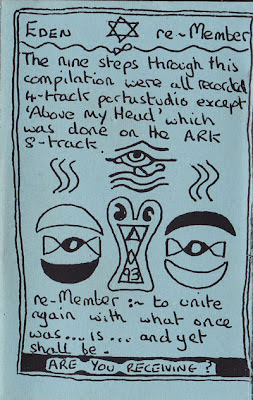 EDEN re~Member
The nine steps through this
compilation were all recorded
4-track portastudio except
'Above my Head' which
was done on the ARK
8-track.
93
re-Member :~ to unite
again with what once
was... is... and yet
shall be.
ARE YOU RECEIVING?